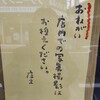 おねがい
店内での写真撮影は
お控えください。
店主